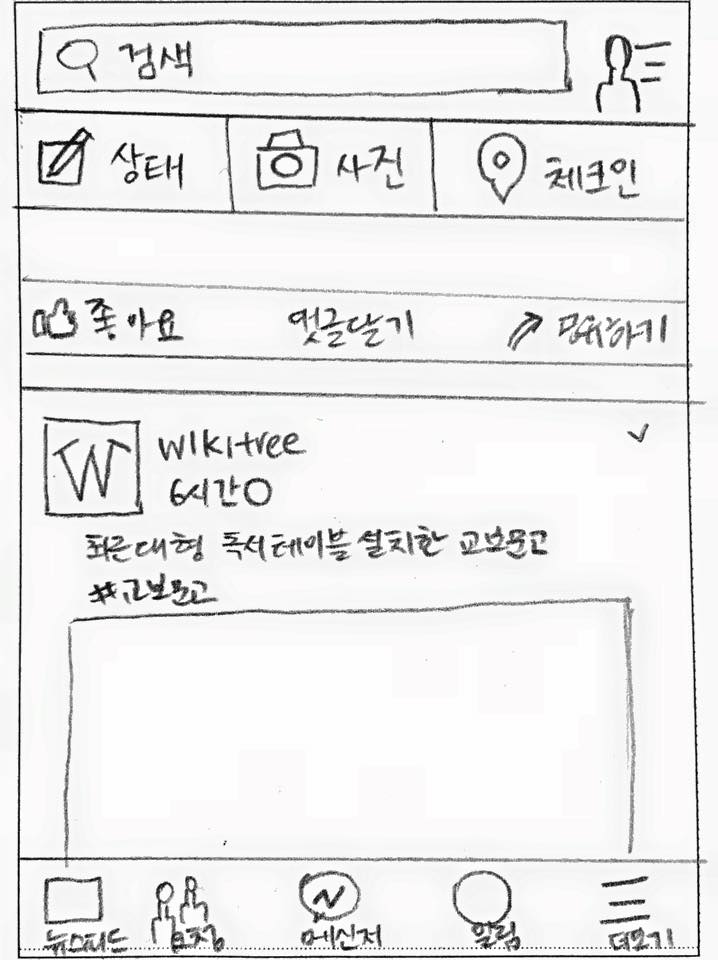 검색
상태 사진 체크인
좋아요 댓글달기 공유하기
W
wikitree
6시간
최근 대형 독서 테이블 설치한 교보문고
#교보문고
뉴스피드 요청 메신저 알림 더보기